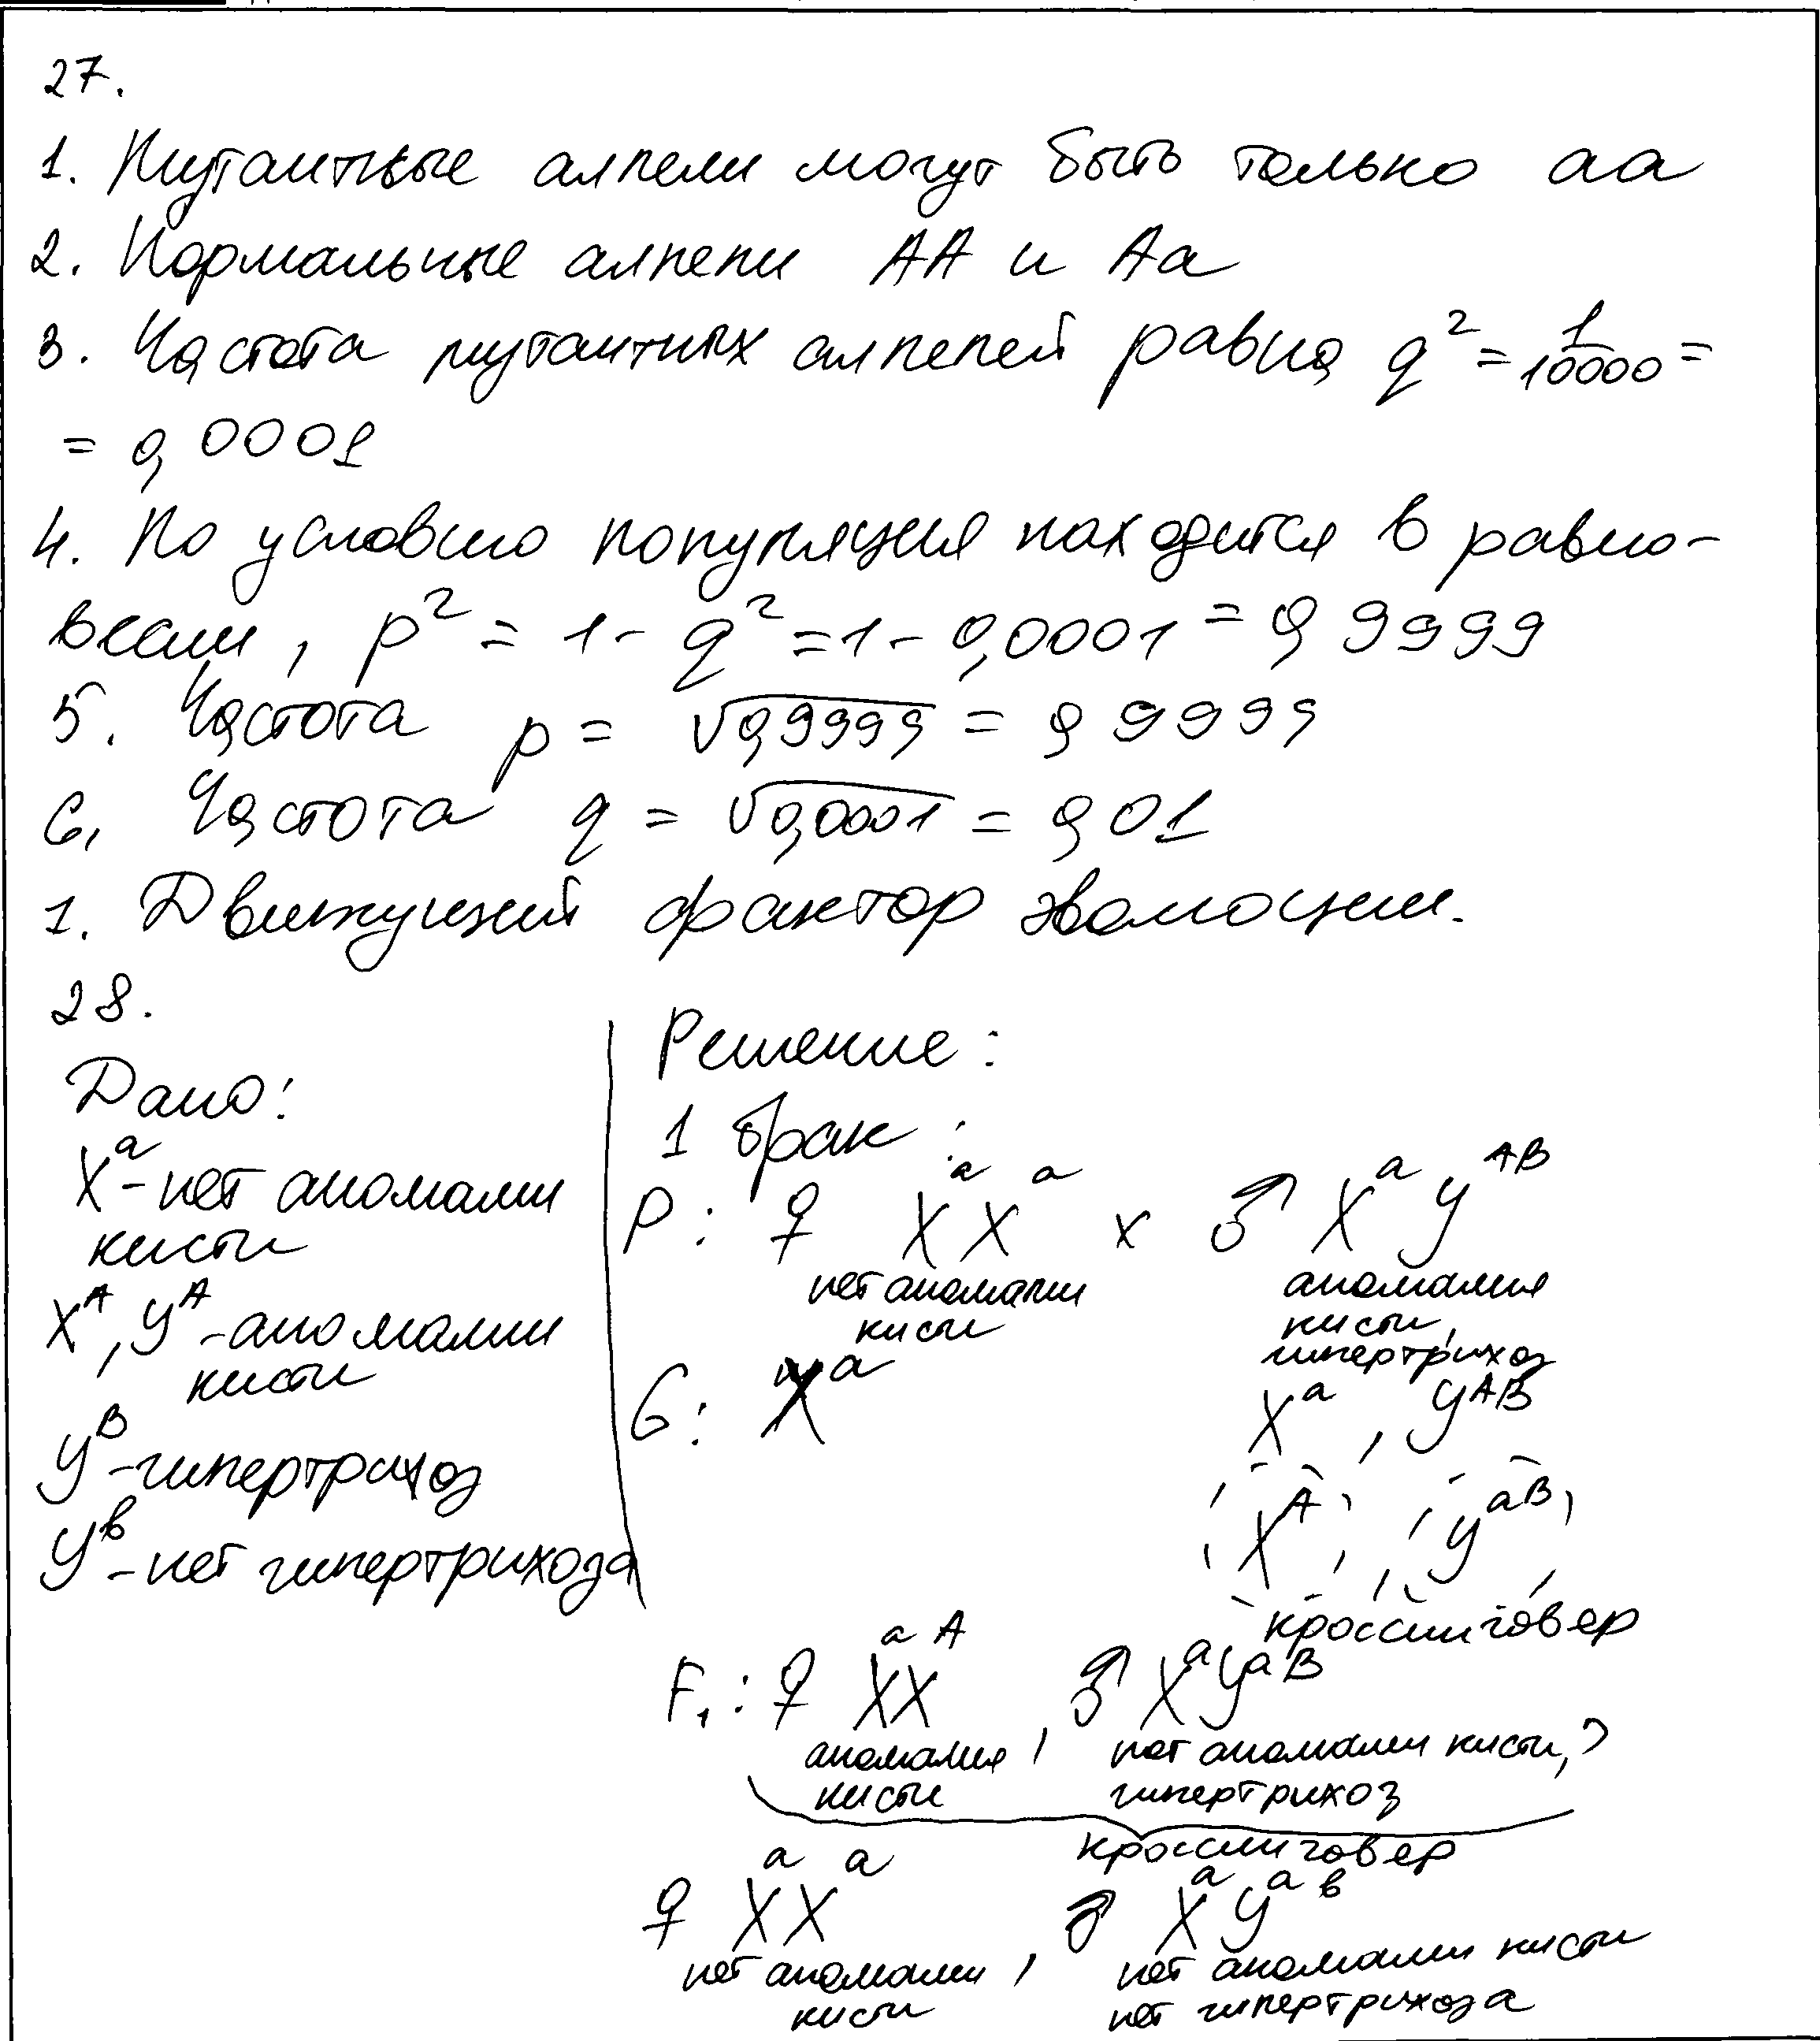 27.
1. Мутантные аллели могут быть только аа
2. Нормальные аллели АА и Аа
3. Частота мутантных аллелей равна q² = 1/10000 =
= 0,0001
4. По условию популяция находится в равно-
весии, p² = 1 - q² = 1 - 0,0001 = 0,9999
5. Частота p = √0,9999 = 0,9999
6. Частота q = √0,0001 = 0,01
1. Движущий фактор эволюции.
28.
Дано:
Xᵃ - нет аномалии
кисти
Xᴬ, Yᴬ - аномалии
кисти
Yᴮ - гипертрихоз
Yᵇ - нет гипертрихоза
Решение:
1 брак:
P: ♀ XᵃXᵃ x ♂ XᵃYᴬᴮ
нет аномалии кисти
аномалия кисти, гипертрихоз
G: Xᵃ
Xᵃ, Yᴬᴮ
Xᴬ, Yᵃᴮ
кроссинговер
F₁: ♀ XᵃXᴬ, ♂ XᵃYᵃᴮ
аномалия кисти
нет аномалии кисти, гипертрихоз
кроссинговер
♀ XᵃXᵃ, ♂ XᵃYᵃᵇ
нет аномалии кисти
нет аномалии кисти
нет гипертрихоза